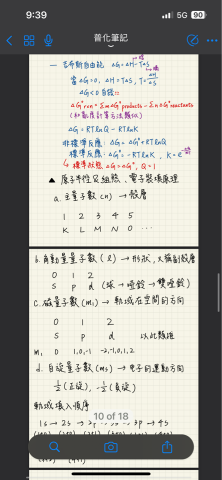 9:39
5G 90
普化筆記
一 吉布斯自由能 ΔG=ΔH-TΔS
當ΔG=0, ΔH=TΔS, T=ΔH/ΔS
ΔG<0 自發
ΔG°rxn=ΣmΔG°products-ΣnΔG°reactants
ΔG=RTlnQ-RTlnK
非標準反應:ΔG=ΔG°+RTlnQ
標準反應:ΔG°=-RTlnK,
標準狀態 ΔG=ΔG°, Q=1
▲ 原子半性質組態、電子裝填原理
a.主量子數(n)→殼層
1 2 3 4 5
K L M N O ...
b.角動量量子數(l)→形狀,
0 1 2
s p d (球→啞鈴→雙啞鈴)
c.磁量子數(ml)→軌域在空間的方向
0 1 2
s p d 以此類推
ml 0 1,0,-1 -2,-1,0,1,2
d.自旋量子數(ms)→電子的運動方向
1/2(正旋), -1/2(負旋)
軌域填入順序
10 of 18
1s→2s→2p→3s→3p→4s